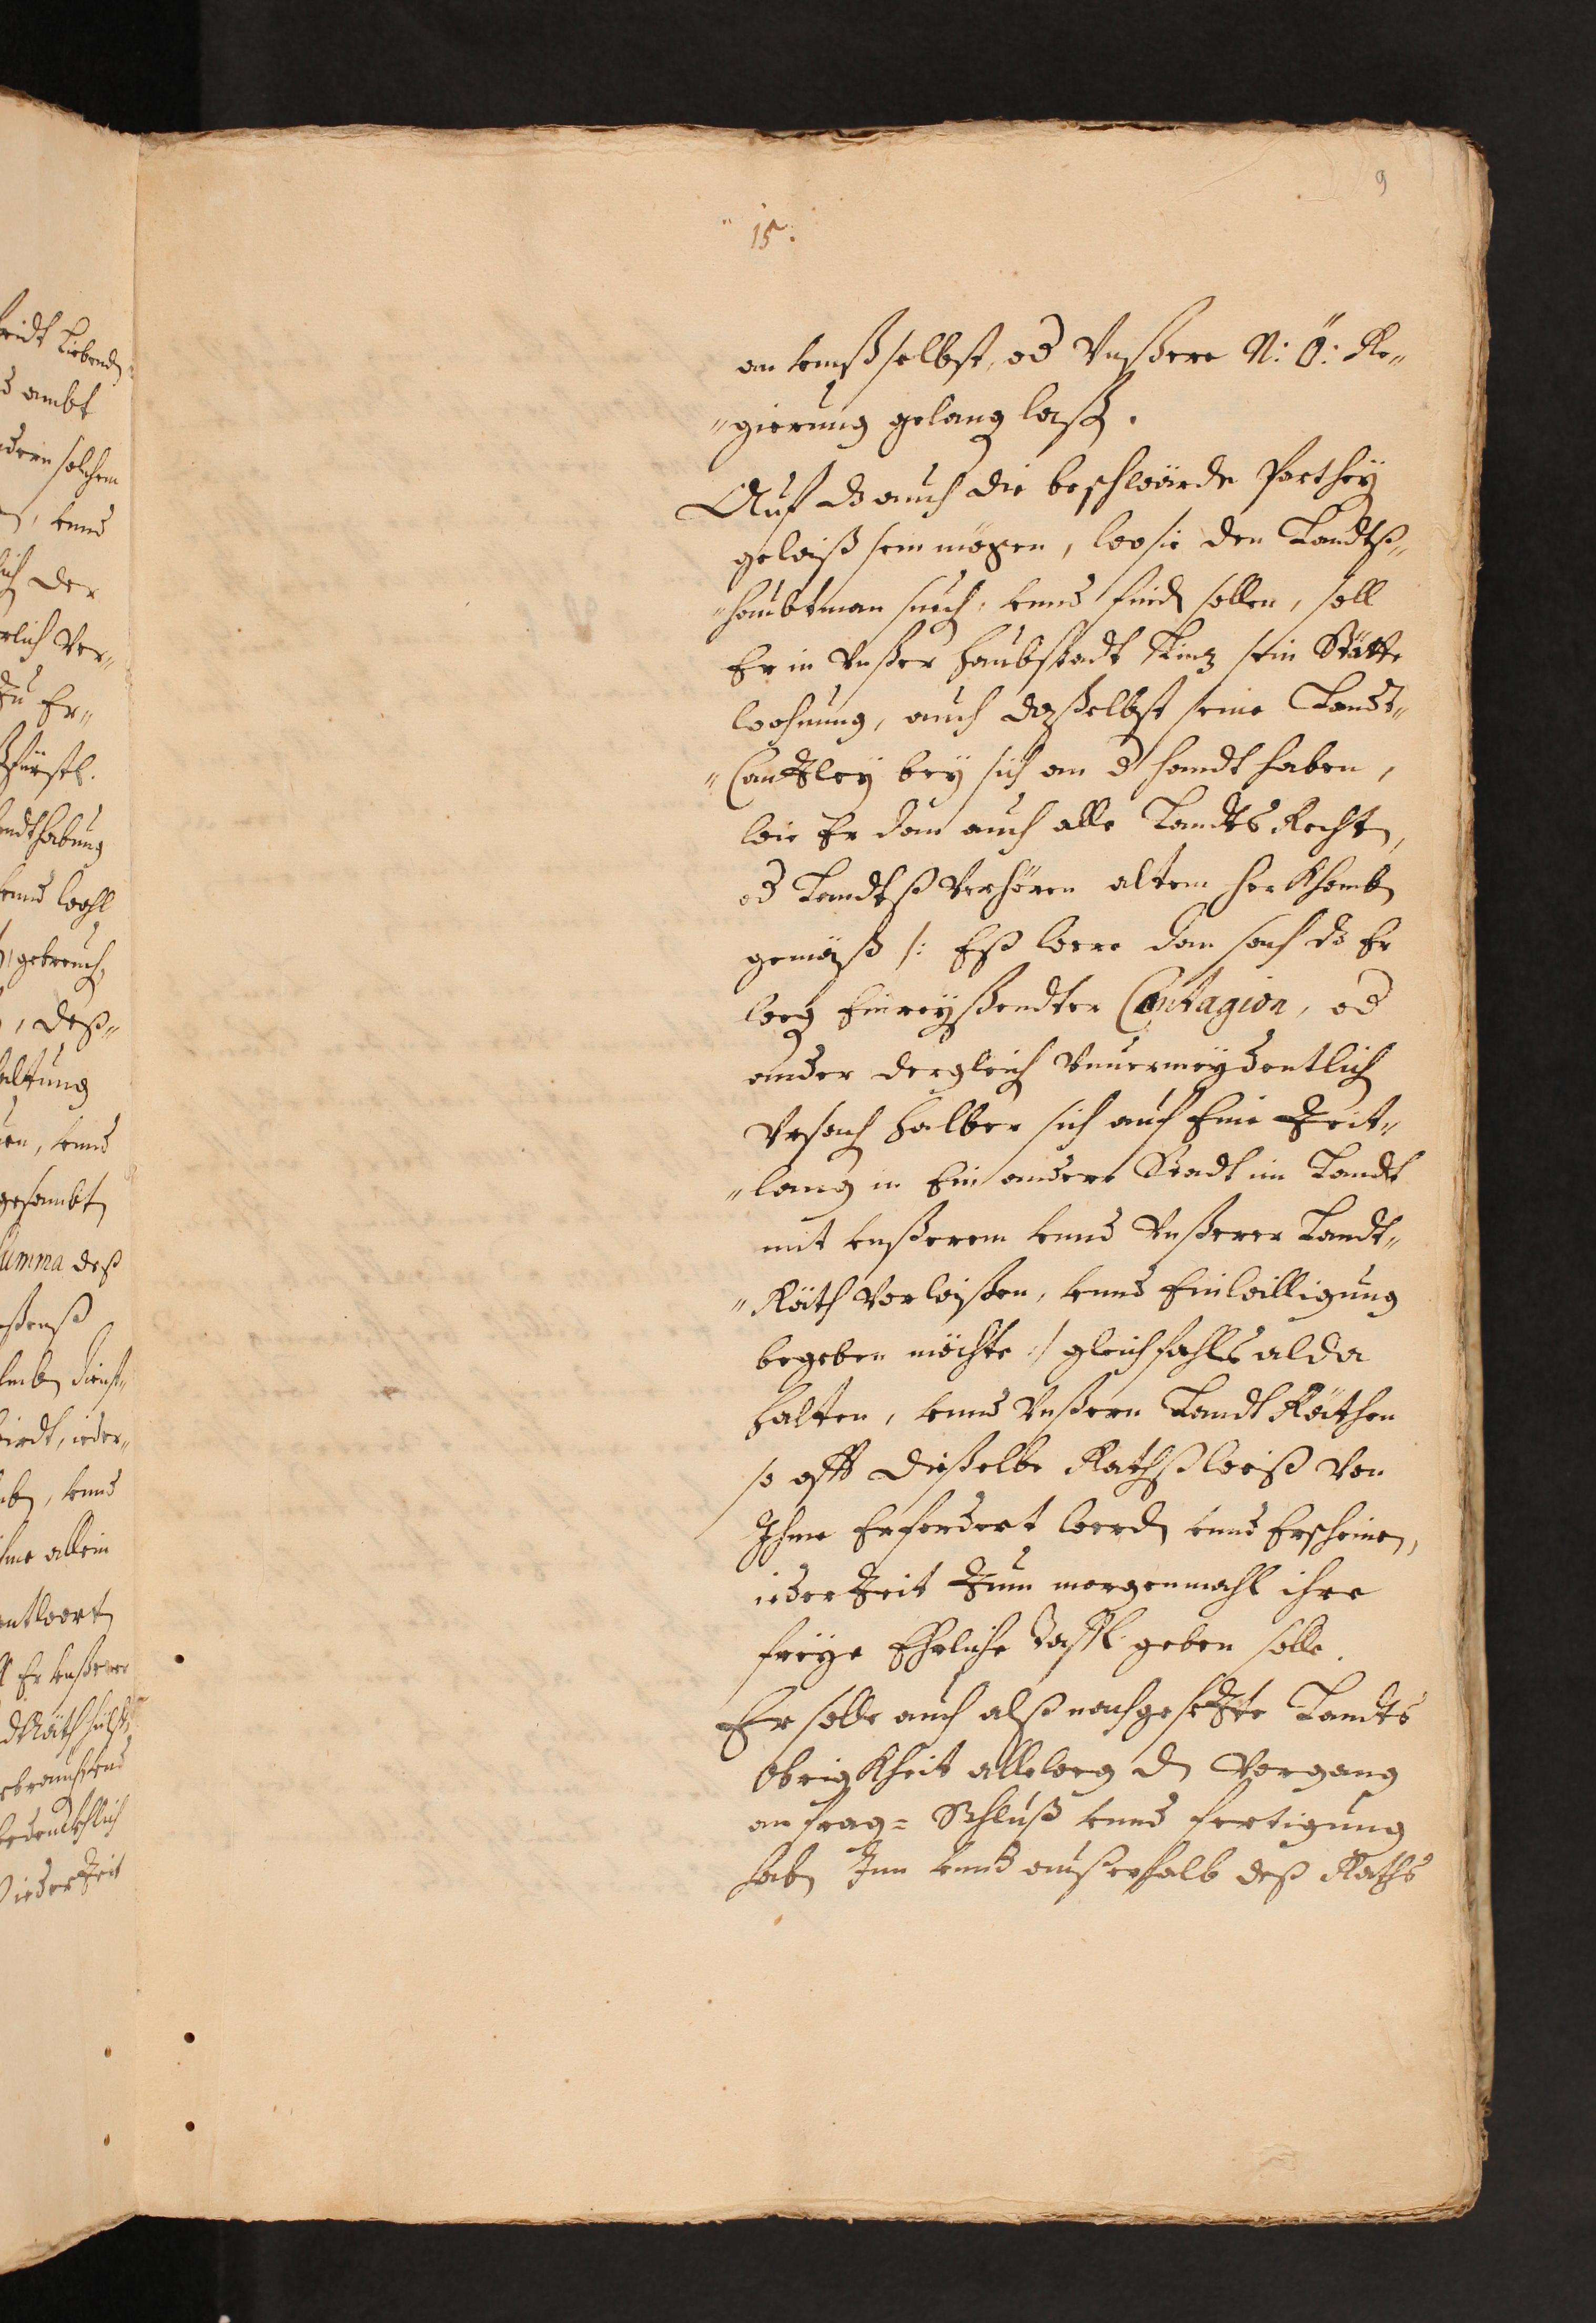 9
15.
an vnnß selbst, od Vnßere N: Ö: Re„
„gierung gelang laß.
Auf dz auch die beschwärde Parthey
gewiß sein mögen, wo sie den Landtß„
„haubtman such: vnnd find sollen, soll
Er in Vnßer Haubstadt Linz sein Stätte
wohnung, auch daßselbst seine Landt„
„Cantzley bey sich an d handt haben,
wie Er dan auch alle Landts Recht,
od Landtß Verhören altem herkhomb
gemäß /: Eß were dan sach dz Er
weg Einreyßendter Contagion, od
ander dergleich Vnuermeydentlich
Vrsach halber sich auf Eine Zeit„
„lang in Ein andere Stadt im Landt
mit Vnßerem vnnd Vnßerer Landt„
„Räth Vorwißen, vnnd Einwilligung
begeben möchte :/ gleichfahls alda
halten, vnnd Vnßern Landt Räthen
so offt dießelbe Rathßweiß Von
Ihme Erfordert werd vnnd Erscheinen,
iederZeit Zum morgenmahl ihre
freye Ehrliche Taffl geben solle.
Er solle auch alß nachgesetzte Landts
Obrigkheit alleweg d Vorgang
an frag= Schluß vnnd fertigung
hab Inn vnnd außerhalb deß Raths
Liebend
ambt
solchem
, vnnd
der
Ver„
Zu Er„
fürstl.
habung
vnnd wohl
gebreuch,
, deß„
haltung
, vnnd
gesambt
Summa deß
dienst„
, ieder„
, vnnd
Ihme allein
antwort
Er Vnßerer
Räth
iederZeit